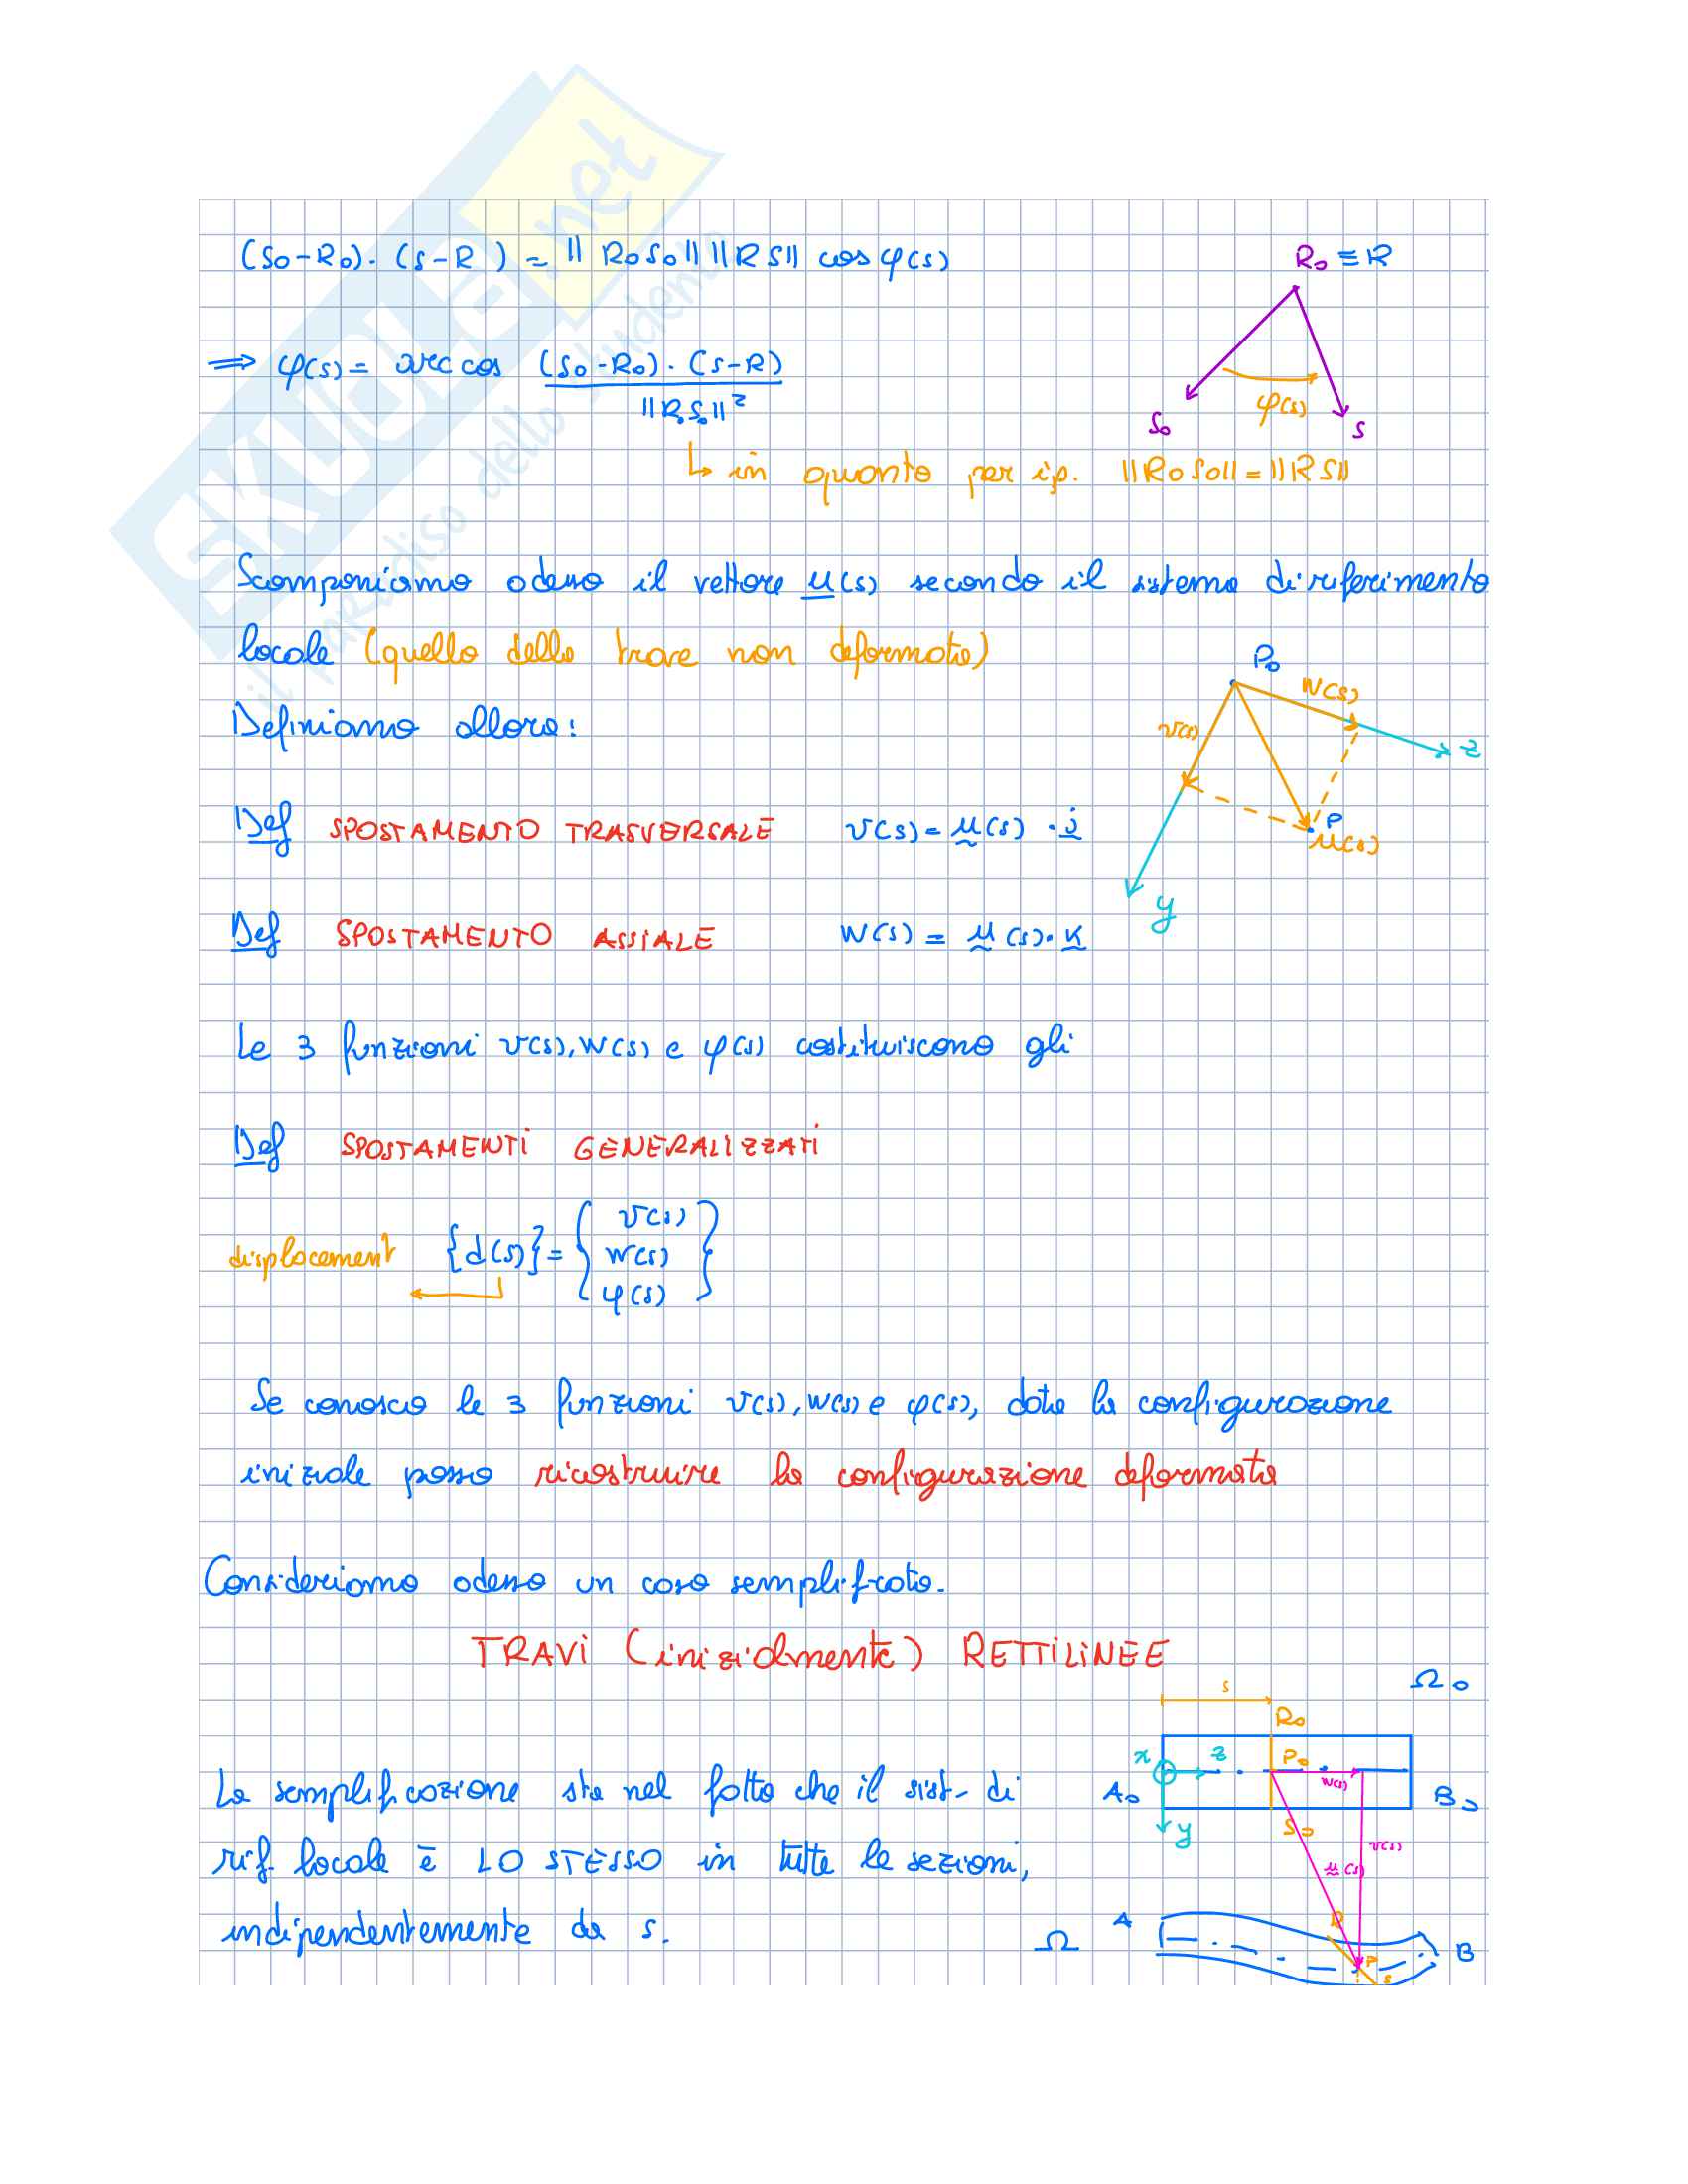 SKUOLA.net
il paradiso dello studente
(S₀-R₀)·(S-R) = ||R₀S₀|| ||RS|| cos φ(s)
R₀ ≡ R
⟹ φ(s) = arccos (S₀-R₀)·(S-R) / ||R₀S₀||²
φ(s)
S₀
S
↳ in quanto per ip. ||R₀S₀|| = ||RS||
Scomponiamo adesso il vettore u(s) secondo il sistema di riferimento
locale (quello della trave non deformata)
P₀
w(s)
Definiamo allora:
v(s)
z
Def SPOSTAMENTO TRASVERSALE v(s) = u(s) · j
P
u(s)
y
Def SPOSTAMENTO ASSIALE w(s) = u(s) · k
Le 3 funzioni v(s), w(s) e φ(s) costituiscono gli
Def SPOSTAMENTI GENERALIZZATI
displacement {d(s)} = { v(s) w(s) φ(s) }
Se conosco le 3 funzioni v(s), w(s) e φ(s), data la configurazione
iniziale posso ricostruire la configurazione deformata
Consideriamo adesso un caso semplificato.
TRAVI (inizialmente) RETTILINEE
Ω₀
s
R₀
x
z
P₀
w(s)
A₀
B₀
y
S₀
v(s)
u(s)
La semplificazione sta nel fatto che il sist. di
rif. locale è LO STESSO in tutte le sezioni,
indipendentemente da s.
Ω
A
R
P
S
B